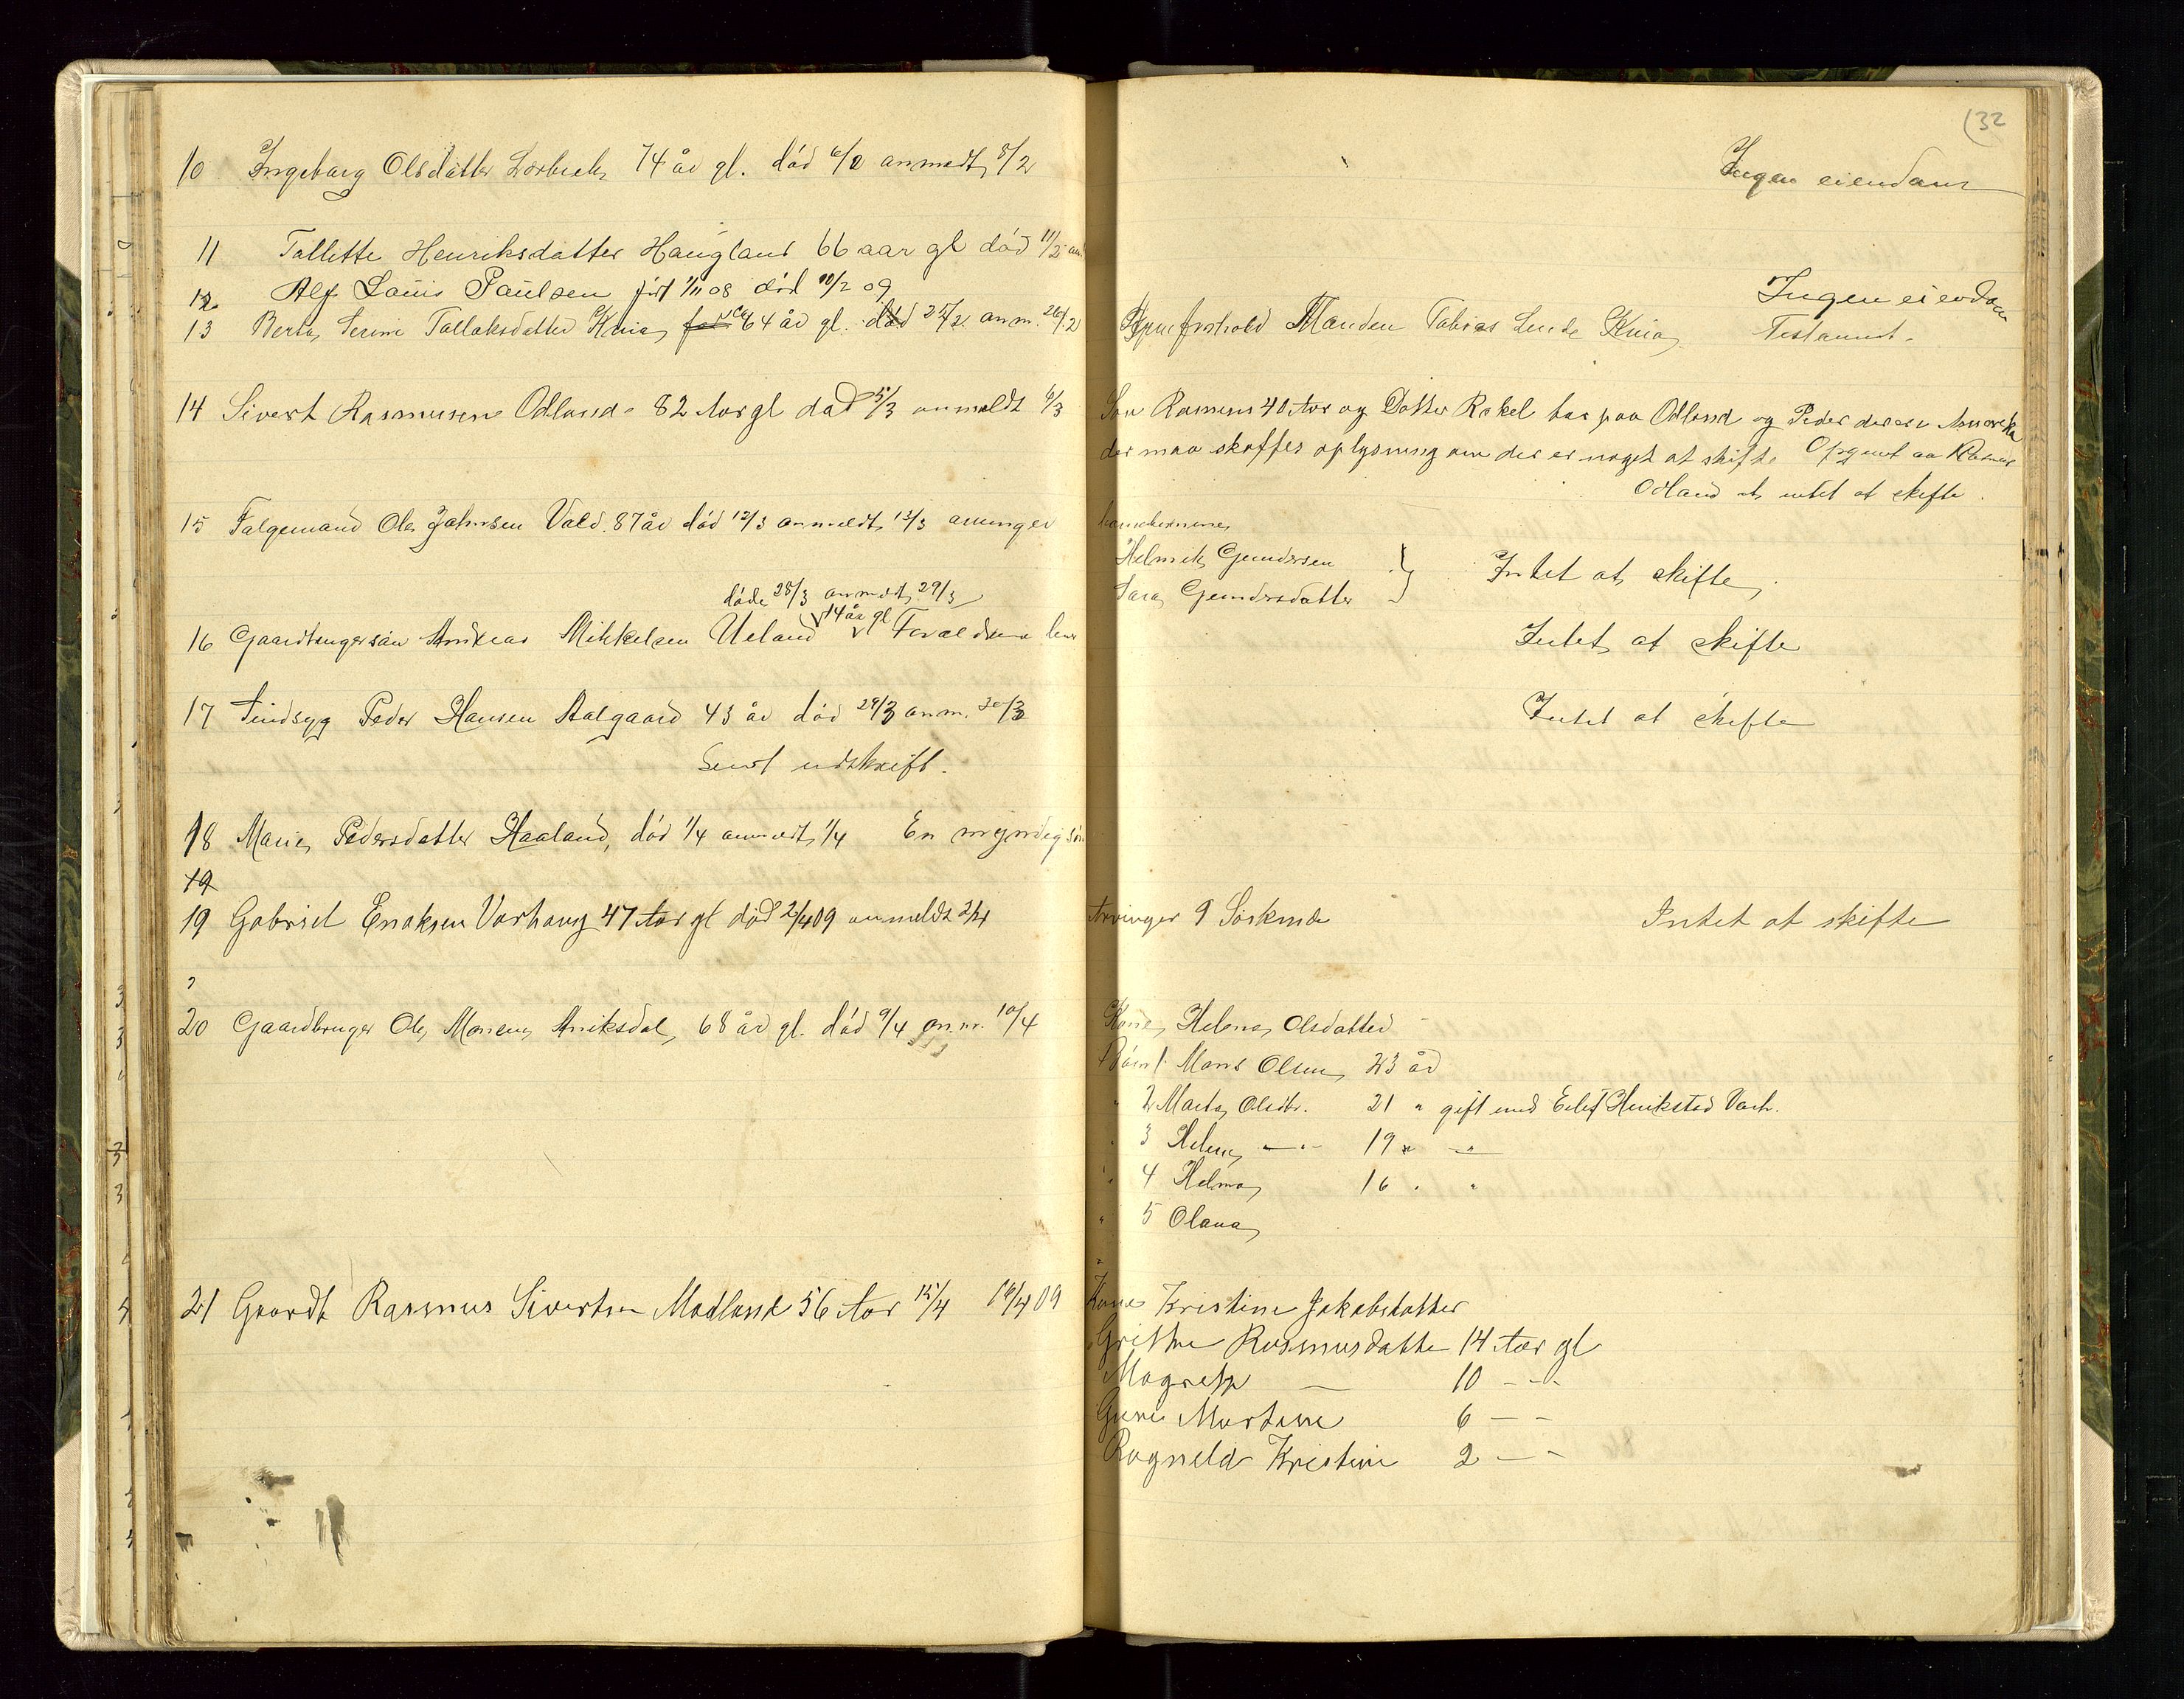 (32
10 Ingeborg Olsdatter 74 år gl. död 6/2 anmedt 8/2
Ingen eiendom
11 Tallette Henriksdatter Haugland 66 aar gl död 11/2
12 Alf Louis Paulsen föd 1/11 08 död 10/2 09
Ingen eiendom
13 Berta Serine Tallaksdatter Knia 64 år gl. död 25/2 anm. 26/2
Manden Tobias Lende Knia Testament.
14 Sivert Rasmusen Odland 82 Aar gl död 5/3 anmeldt 6/3
Søn Rasmus 40 Aar og Datter Rakel bor paa Odland og Peder
der maa skaffes oplysning om der er noget at skifte Opgivet av Rasmus
Odland at intet at skifte.
15 Ole Jahnsen Vold. 87 år död 12/3 anmeldt 13/3 arvinger
barnebørnene
Helmik Gundersen
Sara Gundersdatter } Intet at skifte.
döde 28/3 anmedt 29/3
14 år gl
16 Andreas Mikkelsen Ueland Foreldrene lever
Intet at skifte
17 Sindsyg Peder Hansen Aalgaard 43 år död 29/3 anm. 30/3
Intet at skifte
Sent udskrift.
18 Marie Pedersdatter Haaland, död 1/4 anmeldt 1/4 En myndig sön
19
19 Gabriel Enoksen Varhaug 47 Aar gl död 2/4 09 anmeldt 2/4
Arvinger 9 Søskende Intet at skifte
20 Gaardbruger Ole Monsen Aniksdal, 68 år gl. död 9/4 anm. 10/4
Kone, Helene Olsdatter
Börn 1. Mons Olsen, 23 år
" 2 Marta Olsdtr. 21 " gift med Eilef Henikstad Varh.
" 3 Helene —"— 19 " —"—
" 4 Helma 16 " "
" 5 Olava
21 Gaardbr Rasmus Sivertsen Madland 56 Aar 15/4 16/4 09
Kone Kristine Jakobsdatter
Grethe Rasmusdatter 14 Aar gl
Magreta — 10 - -
Martine 6 — -
Ragneld Kristine 2 — -